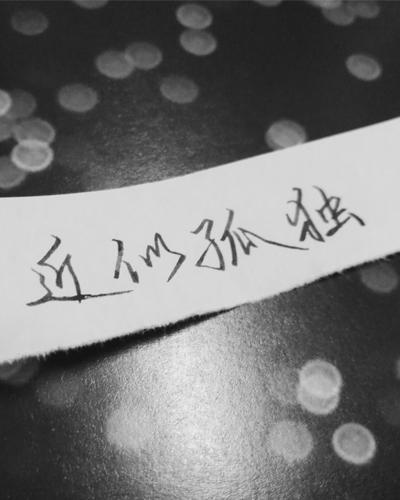 近似孤独